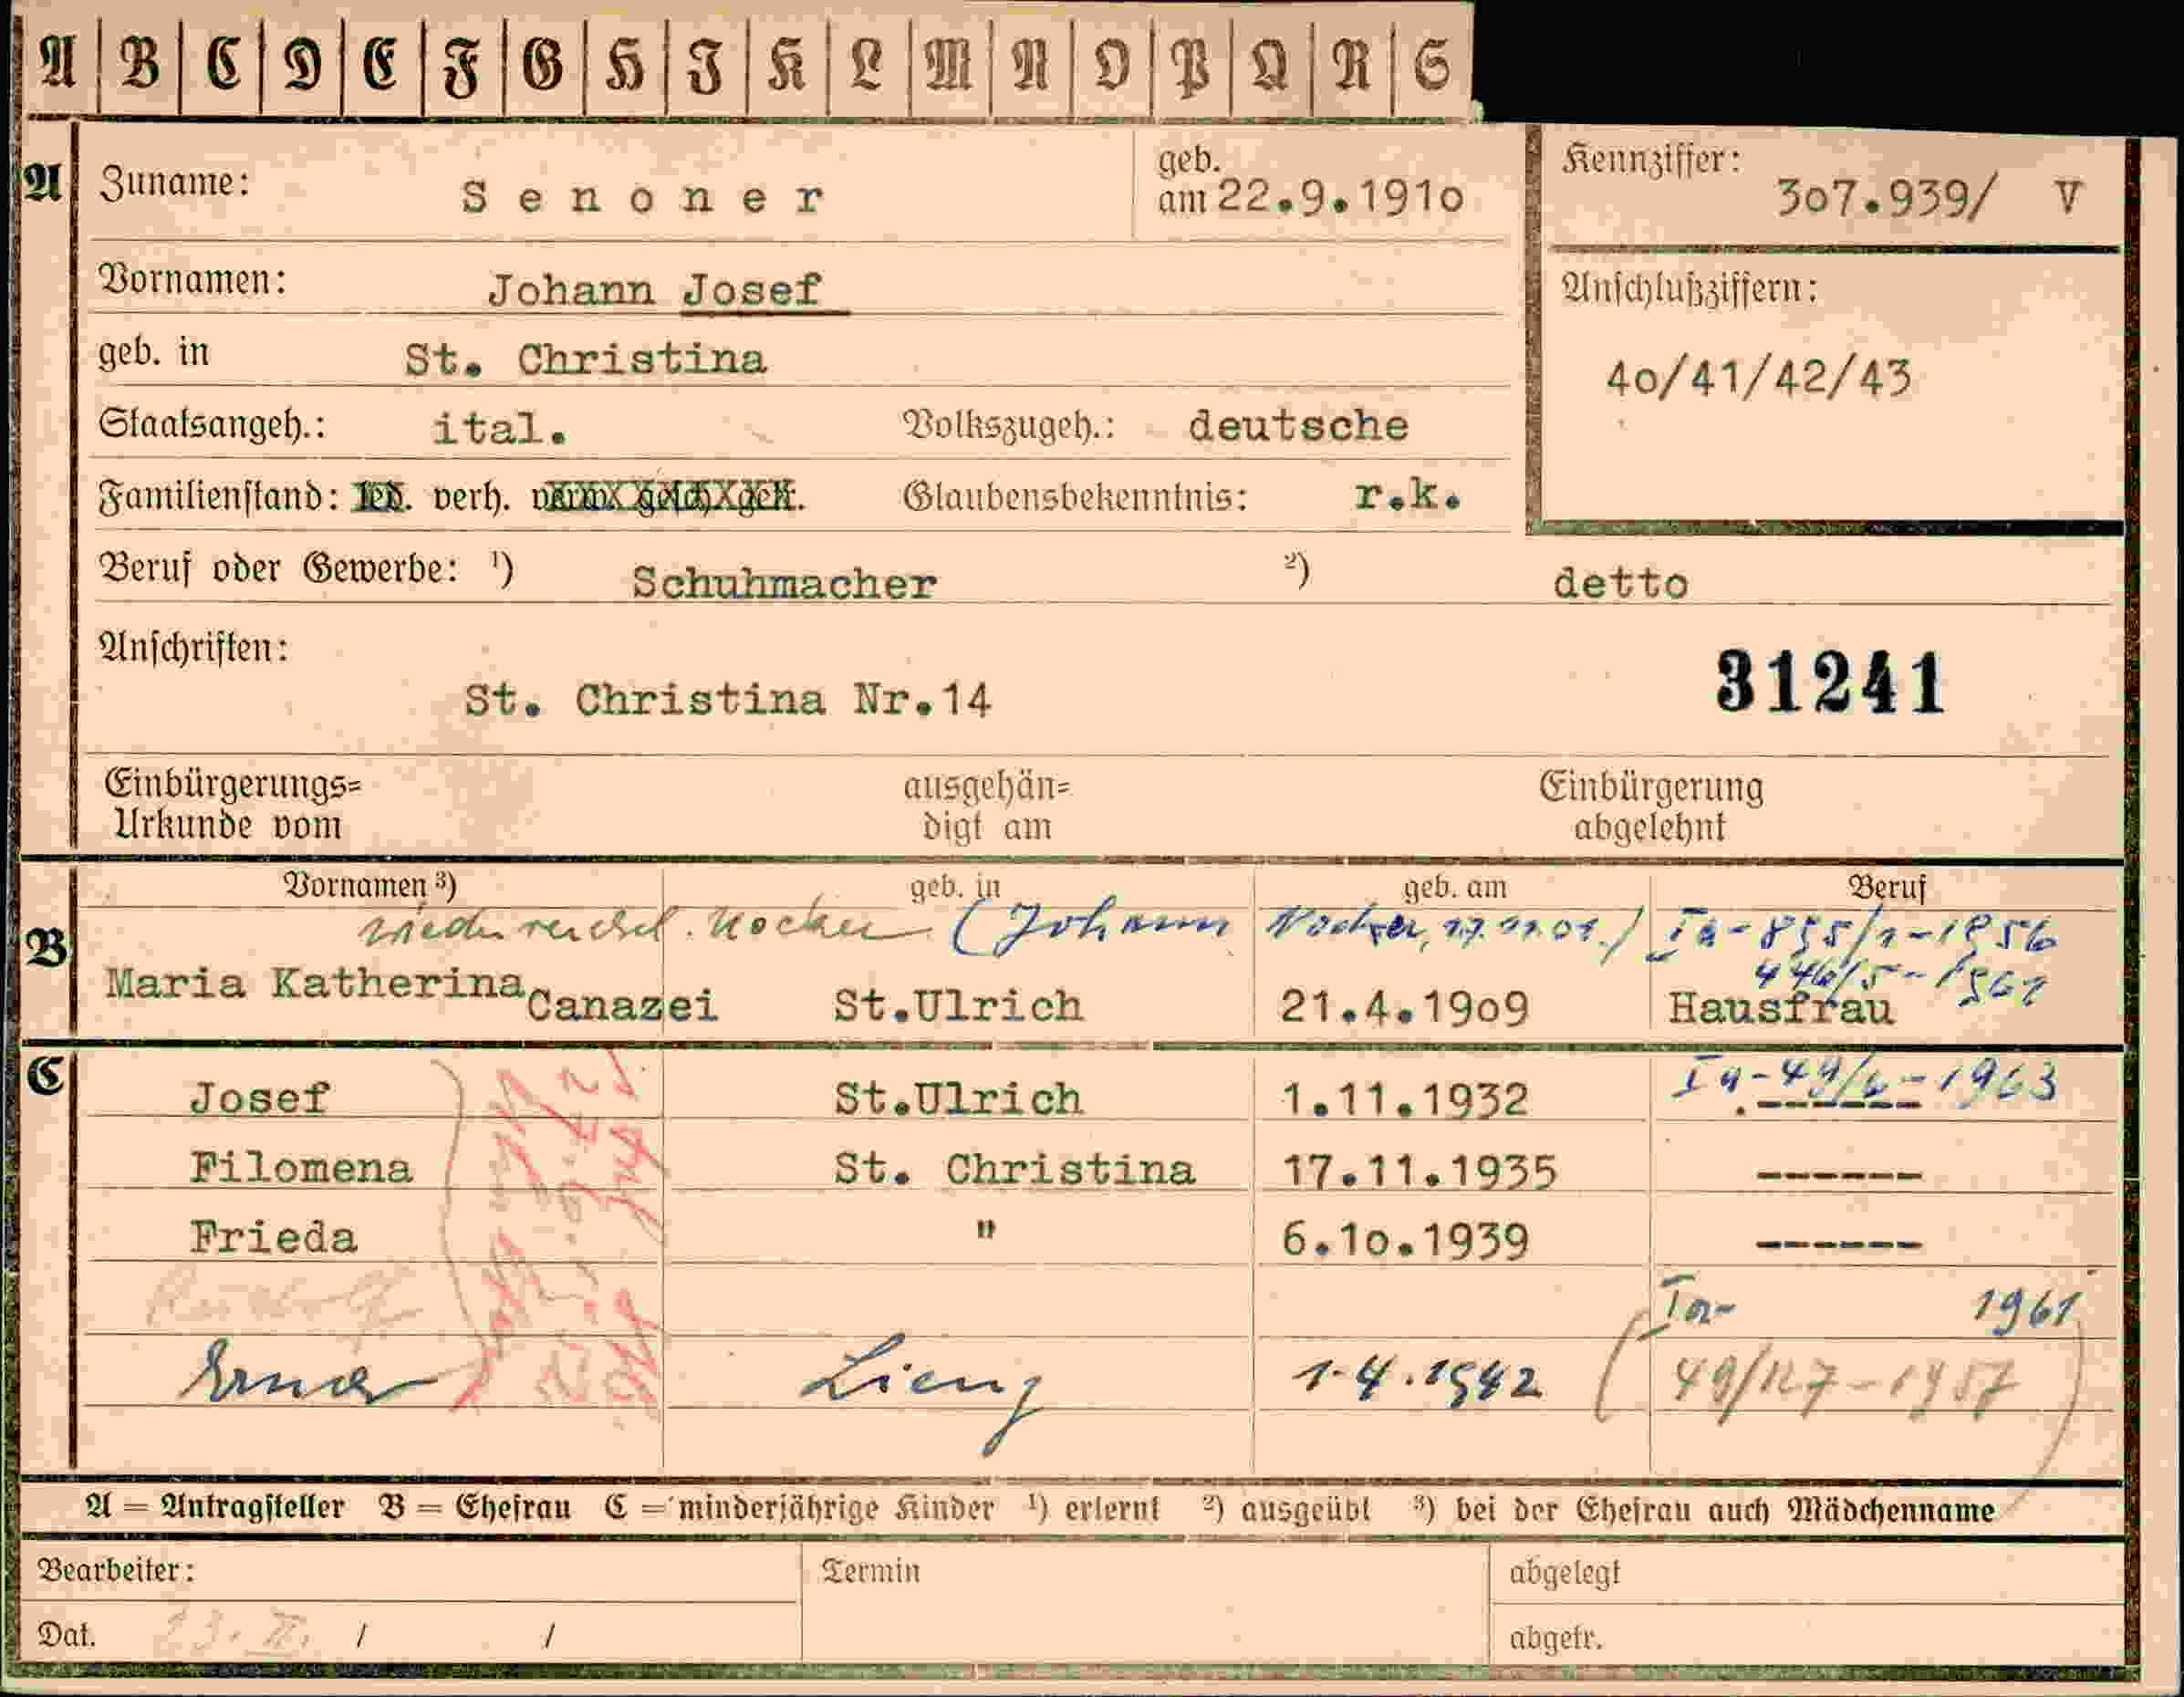 A B C D E F G H I K L M N O P Q R S
A Zuname: Senoner geb. am 22.9.1910 Kennziffer: 307.939/ V
Vornamen: Johann Josef Anschlußziffern:
geb. in St. Christina 40/41/42/43
Staatsangeh.: ital. Volkszugeh.: deutsche
Familienstand: led. verh. verw. gesch. get. Glaubensbekenntnis: r.k.
Beruf oder Gewerbe: ¹) Schuhmacher ²) detto
Anschriften: 31241
St. Christina Nr.14
Einbürgerungs= ausgehän= Einbürgerung
Urkunde vom digt am abgelehnt
Vornamen ³) geb. in geb. am Beruf
(Johann Nocker, 17.11.01.) Ia-855/1-1956
B Maria Katherina Canazei St.Ulrich 21.4.1909 Hausfrau
C Josef St.Ulrich 1.11.1932 .------
Filomena St. Christina 17.11.1935 ------
Frieda " 6.10.1939 ------
Ia- 1961
Erna Lienz 1.4.1942 (49/127-1957)
A = Antragsteller B = Ehefrau C = minderjährige Kinder ¹) erlernt ²) ausgeübt ³) bei der Ehefrau auch Mädchenname
Bearbeiter: Termin abgelegt
Dat. / / abgetr.